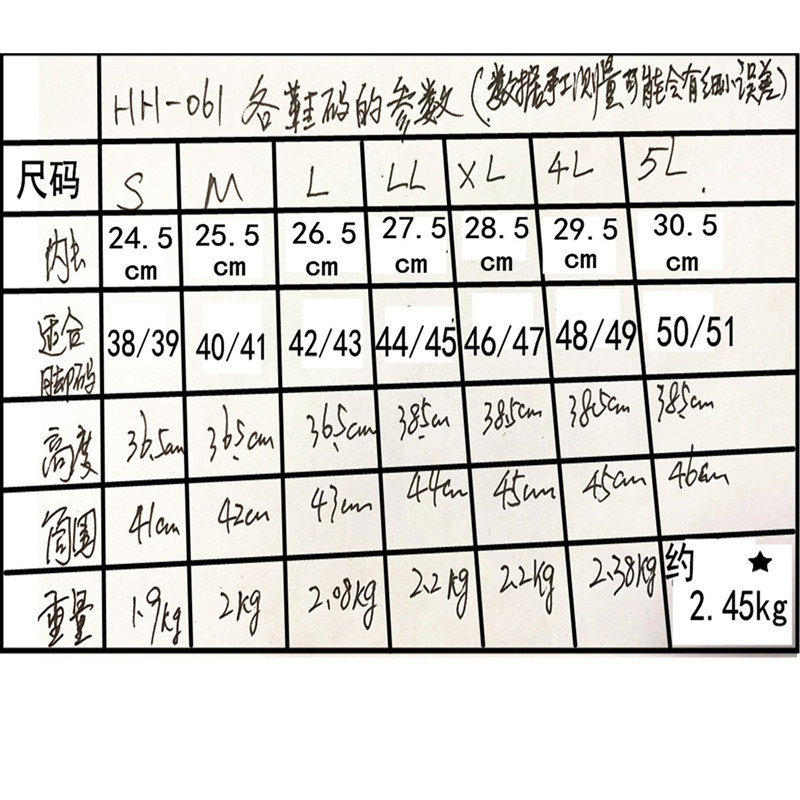 HH-061 各鞋码的参数(数据手工测量可能会有细小误差)
尺码 S M L LL XL 4L 5L.
内长 24.5cm 25.5cm 26.5cm 27.5cm 28.5cm 29.5cm 30.5cm
适合脚码 38/39 40/41 42/43 44/45 46/47 48/49 50/51
高度 36.5cm 36.5cm 36.5cm 38.5cm 38.5cm 38.5cm 38.5cm
筒围 41cm 42cm 43cm 44cm 45cm 45cm 46cm
重量 1.9kg 2kg 2.08kg 2.2kg 2.2kg 2.38kg 约★2.45kg